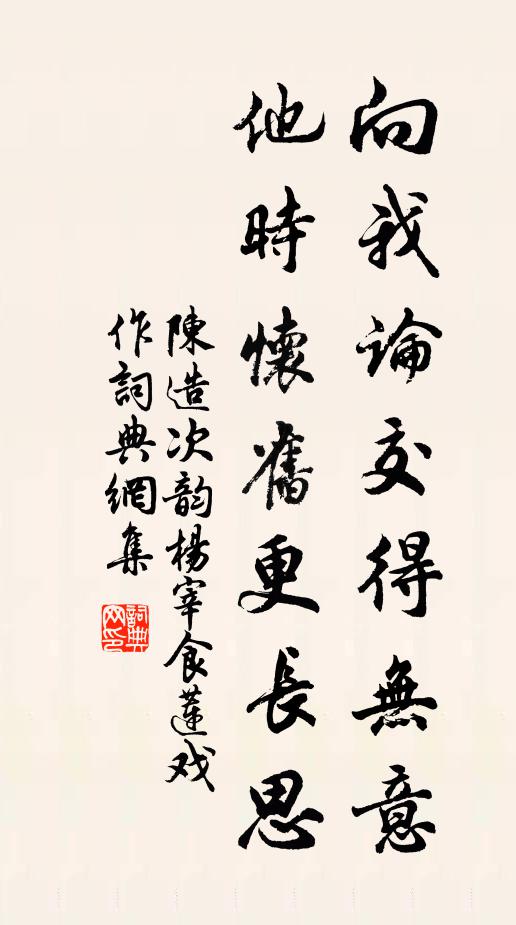 向我論交得無意
他時懷舊更長思
陳造次韵楊宰食蓮戏
作詞典網集
詞典网印